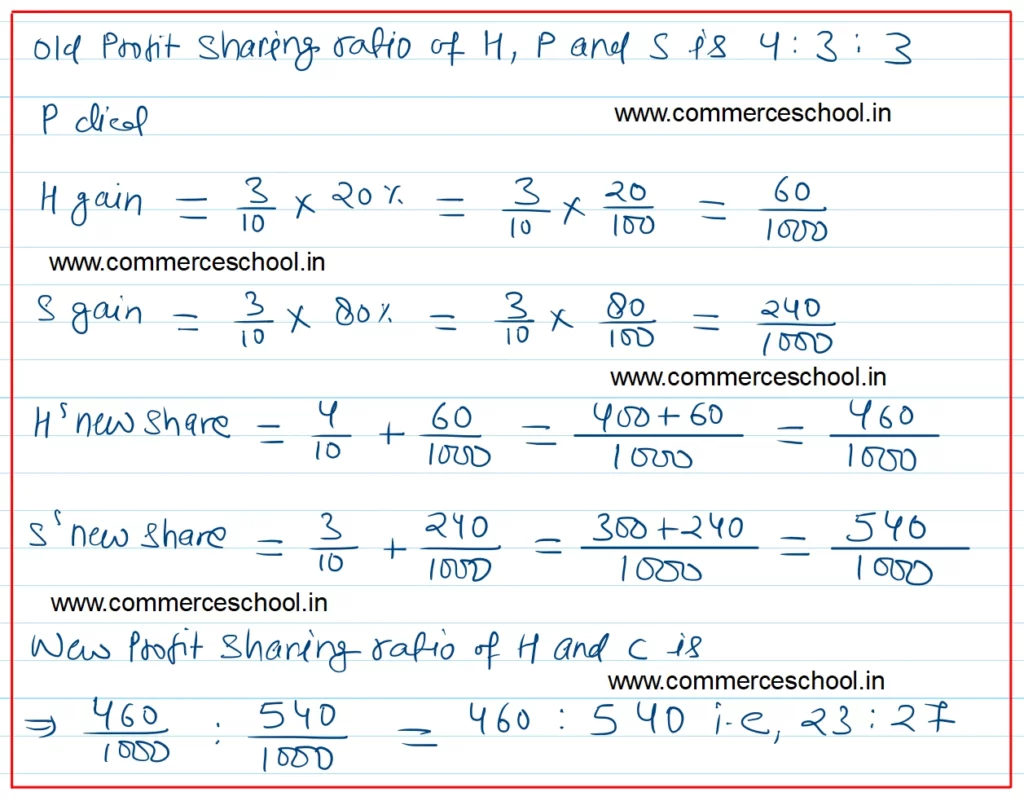 Old Profit Sharing ratio of H, P and S is 4 : 3 : 3
P died
www.commerceschool.in
H gain = 3/10 × 20% = 3/10 × 20/100 = 60/1000
www.commerceschool.in
S gain = 3/10 × 80% = 3/10 × 80/100 = 240/1000
www.commerceschool.in
H's new share = 4/10 + 60/1000 = 400+60/1000 = 460/1000
S's new share = 3/10 + 240/1000 = 300+240/1000 = 540/1000
www.commerceschool.in
New Profit Sharing ratio of H and C is
www.commerceschool.in
⇒ 460/1000 : 540/1000 = 460 : 540 i.e, 23 : 27